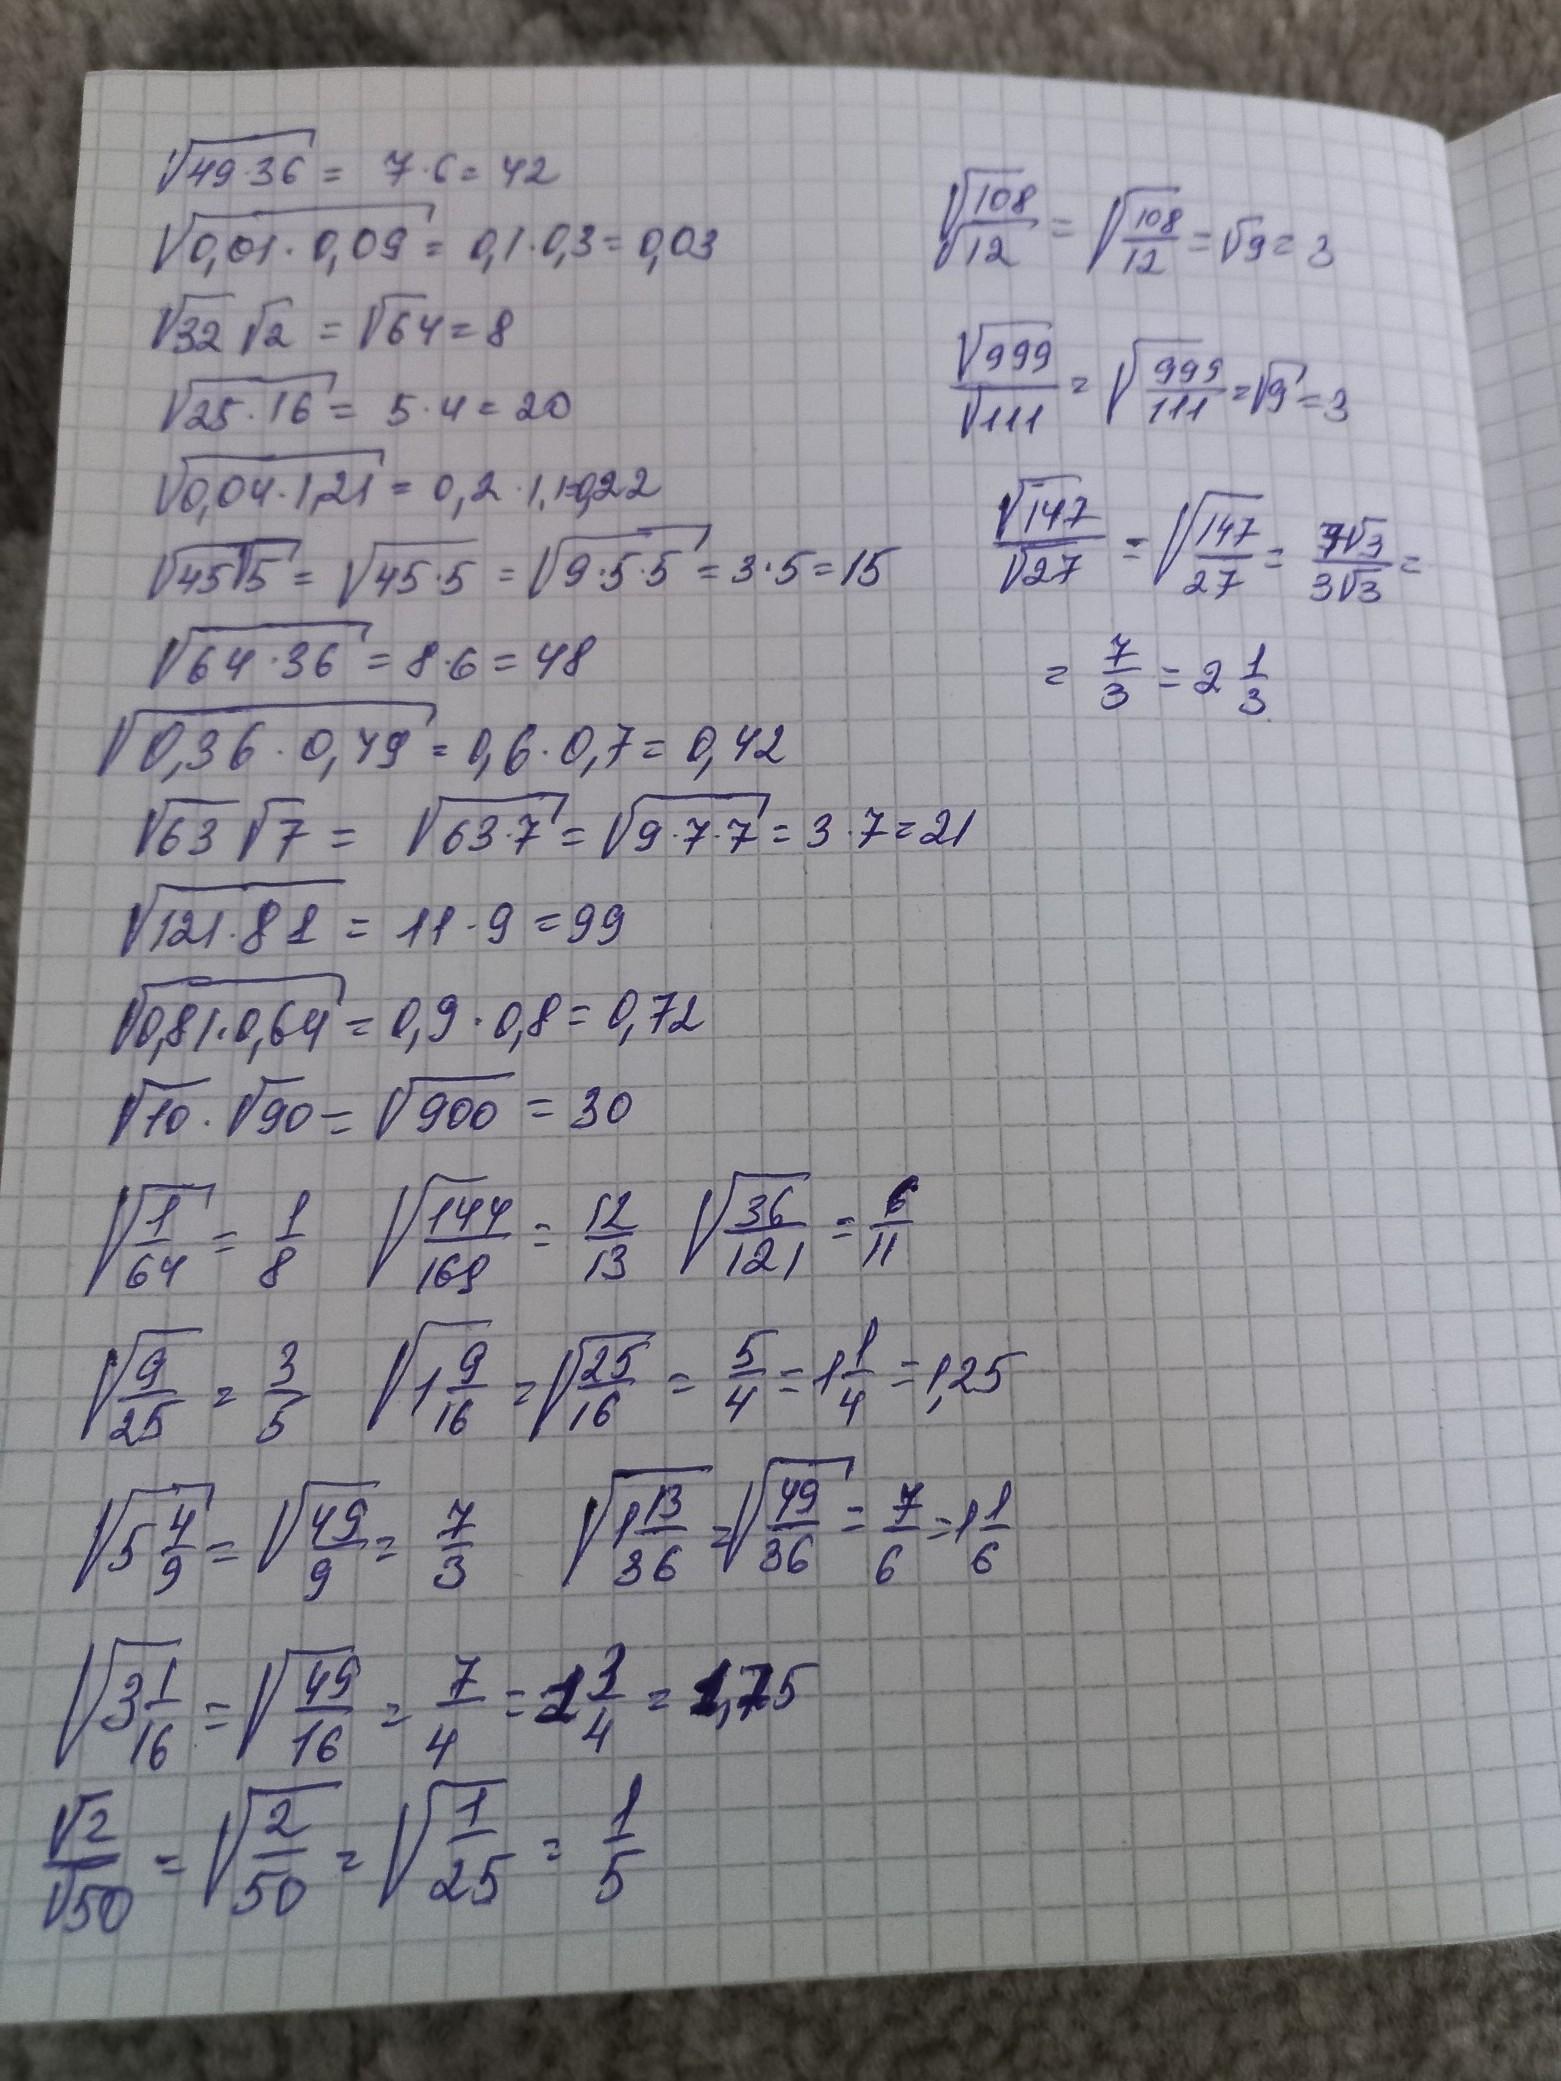 √(49·36) = 7·6 = 42
√(0,01·0,09) = 0,1·0,3 = 0,03
√32 √2 = √64 = 8
√(25·16) = 5·4 = 20
√(0,04·1,21) = 0,2·1,1=0,22
√45√5 = √(45·5) = √(9·5·5) = 3·5 = 15
√(64·36) = 8·6 = 48
√(0,36·0,49) = 0,6·0,7 = 0,42
√63 √7 = √(63·7) = √(9·7·7) = 3·7 = 21
√(121·81) = 11·9 = 99
√(0,81·0,64) = 0,9·0,8 = 0,72
√10·√90 = √900 = 30
√(1/64) = 1/8 √(144/169) = 12/13 √(36/121) = 6/11
√(9/25) = 3/5 √(1 9/16) = √(25/16) = 5/4 = 1 1/4 = 1,25
√(5 4/9) = √(49/9) = 7/3 √(1 13/36) = √(49/36) = 7/6 = 1 1/6
√(3 1/16) = √(49/16) = 7/4 = 1 3/4 = 1,75
√2/√50 = √(2/50) = √(1/25) = 1/5
√108/√12 = √(108/12) = √9 = 3
√999/√111 = √(999/111) = √9 = 3
√147/√27 = √(147/27) = 7√3/3√3 =
= 7/3 = 2 1/3